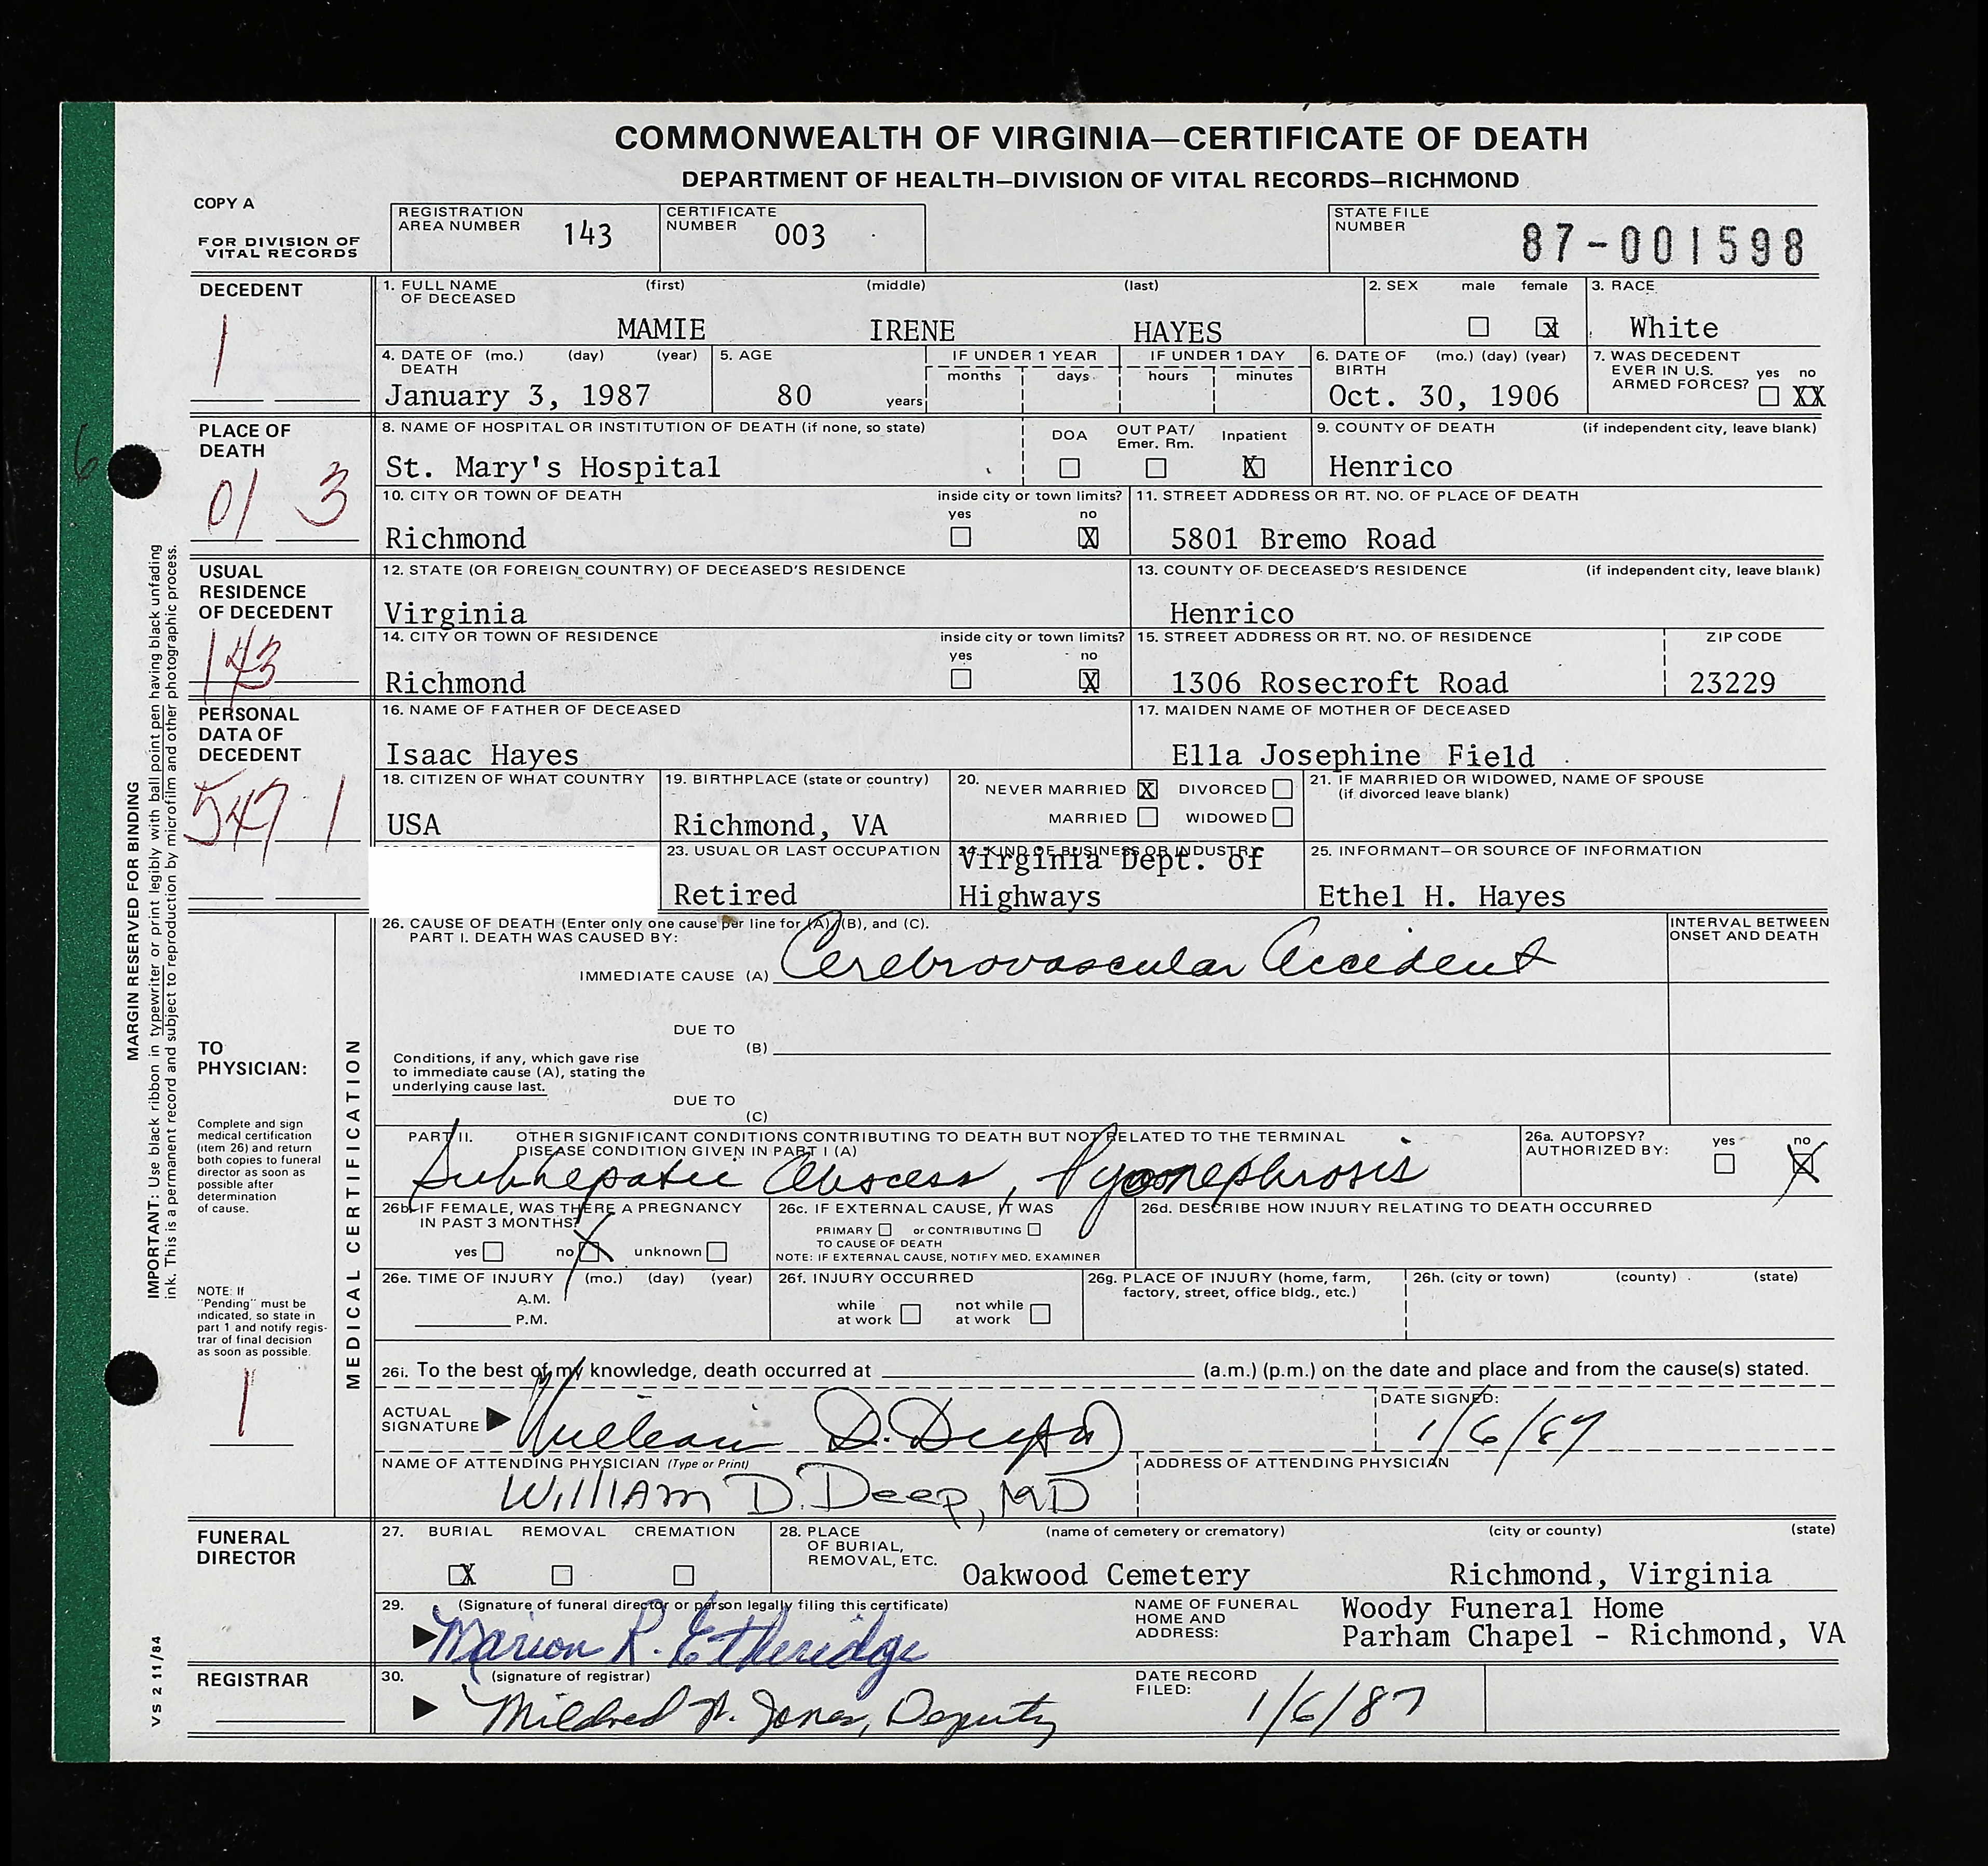 COMMONWEALTH OF VIRGINIA—CERTIFICATE OF DEATH
DEPARTMENT OF HEALTH—DIVISION OF VITAL RECORDS—RICHMOND
COPY A
FOR DIVISION OF
VITAL RECORDS
REGISTRATION
AREA NUMBER 143
CERTIFICATE
NUMBER 003
STATE FILE
NUMBER 87-001598
DECEDENT
1
1. FULL NAME OF DECEASED (first) (middle) (last)
MAMIE IRENE HAYES
2. SEX male female
x
3. RACE
White
4. DATE OF DEATH (mo.) (day) (year)
January 3, 1987
5. AGE
80 years
IF UNDER 1 YEAR
months days
IF UNDER 1 DAY
hours minutes
6. DATE OF BIRTH (mo.) (day) (year)
Oct. 30, 1906
7. WAS DECEDENT
EVER IN U.S.
ARMED FORCES? yes no
XX
PLACE OF
DEATH
6
01 3
8. NAME OF HOSPITAL OR INSTITUTION OF DEATH (if none, so state)
St. Mary's Hospital
DOA OUT PAT/ Emer. Rm. Inpatient
X
9. COUNTY OF DEATH (if independent city, leave blank)
Henrico
10. CITY OR TOWN OF DEATH
Richmond
inside city or town limits?
yes no
X
11. STREET ADDRESS OR RT. NO. OF PLACE OF DEATH
5801 Bremo Road
USUAL
RESIDENCE
OF DECEDENT
143
12. STATE (OR FOREIGN COUNTRY) OF DECEASED'S RESIDENCE
Virginia
13. COUNTY OF DECEASED'S RESIDENCE (if independent city, leave blank)
Henrico
14. CITY OR TOWN OF RESIDENCE
Richmond
inside city or town limits?
yes no
X
15. STREET ADDRESS OR RT. NO. OF RESIDENCE
1306 Rosecroft Road
ZIP CODE
23229
PERSONAL
DATA OF
DECEDENT
547 1
16. NAME OF FATHER OF DECEASED
Isaac Hayes
17. MAIDEN NAME OF MOTHER OF DECEASED
Ella Josephine Field
18. CITIZEN OF WHAT COUNTRY
USA
19. BIRTHPLACE (state or country)
Richmond, VA
20. NEVER MARRIED X DIVORCED
MARRIED WIDOWED
21. IF MARRIED OR WIDOWED, NAME OF SPOUSE
(if divorced leave blank)
23. USUAL OR LAST OCCUPATION
Retired
24. KIND OF BUSINESS OR INDUSTRY
Virginia Dept. of
Highways
25. INFORMANT—OR SOURCE OF INFORMATION
Ethel H. Hayes
MARGIN RESERVED FOR BINDING
IMPORTANT: Use black ribbon in typewriter or print legibly with ball point pen having black unfading
ink. This is a permanent record and subject to reproduction by microfilm and other photographic process.
VS 2 11/84
TO
PHYSICIAN:
Complete and sign
medical certification
(item 26) and return
both copies to funeral
director as soon as
possible after
determination
of cause.
NOTE: If
"Pending" must be
indicated, so state in
part 1 and notify regis-
trar of final decision
as soon as possible.
1
MEDICAL CERTIFICATION
26. CAUSE OF DEATH (Enter only one cause per line for (A), (B), and (C).
PART I. DEATH WAS CAUSED BY:
INTERVAL BETWEEN
ONSET AND DEATH
IMMEDIATE CAUSE (A) Cerebrovascular Accident
DUE TO
(B)
Conditions, if any, which gave rise
to immediate cause (A), stating the
underlying cause last.
DUE TO
(C)
PART II. OTHER SIGNIFICANT CONDITIONS CONTRIBUTING TO DEATH BUT NOT RELATED TO THE TERMINAL
DISEASE CONDITION GIVEN IN PART I (A)
Subhepatic Abscess, Pyonephrosis
26a. AUTOPSY?
AUTHORIZED BY: yes no
X
26b. IF FEMALE, WAS THERE A PREGNANCY
IN PAST 3 MONTHS?
yes no X unknown
26c. IF EXTERNAL CAUSE, IT WAS
PRIMARY or CONTRIBUTING
TO CAUSE OF DEATH
NOTE: IF EXTERNAL CAUSE, NOTIFY MED. EXAMINER
26d. DESCRIBE HOW INJURY RELATING TO DEATH OCCURRED
26e. TIME OF INJURY (mo.) (day) (year)
A.M.
P.M.
26f. INJURY OCCURRED
while at work not while at work
26g. PLACE OF INJURY (home, farm,
factory, street, office bldg., etc.)
26h. (city or town) (county) (state)
26i. To the best of my knowledge, death occurred at (a.m.) (p.m.) on the date and place and from the cause(s) stated.
ACTUAL
SIGNATURE William D. Deep MD
DATE SIGNED:
1/6/87
NAME OF ATTENDING PHYSICIAN (Type or Print)
William D. Deep, MD
ADDRESS OF ATTENDING PHYSICIAN
FUNERAL
DIRECTOR
27. BURIAL REMOVAL CREMATION
X
28. PLACE
OF BURIAL,
REMOVAL, ETC. (name of cemetery or crematory) (city or county) (state)
Oakwood Cemetery Richmond, Virginia
29. (Signature of funeral director or person legally filing this certificate)
Marion R. Etheridge
NAME OF FUNERAL
HOME AND
ADDRESS:
Woody Funeral Home
Parham Chapel - Richmond, VA
REGISTRAR
30. (signature of registrar)
Mildred Jones, Deputy
DATE RECORD
FILED:
1/6/87